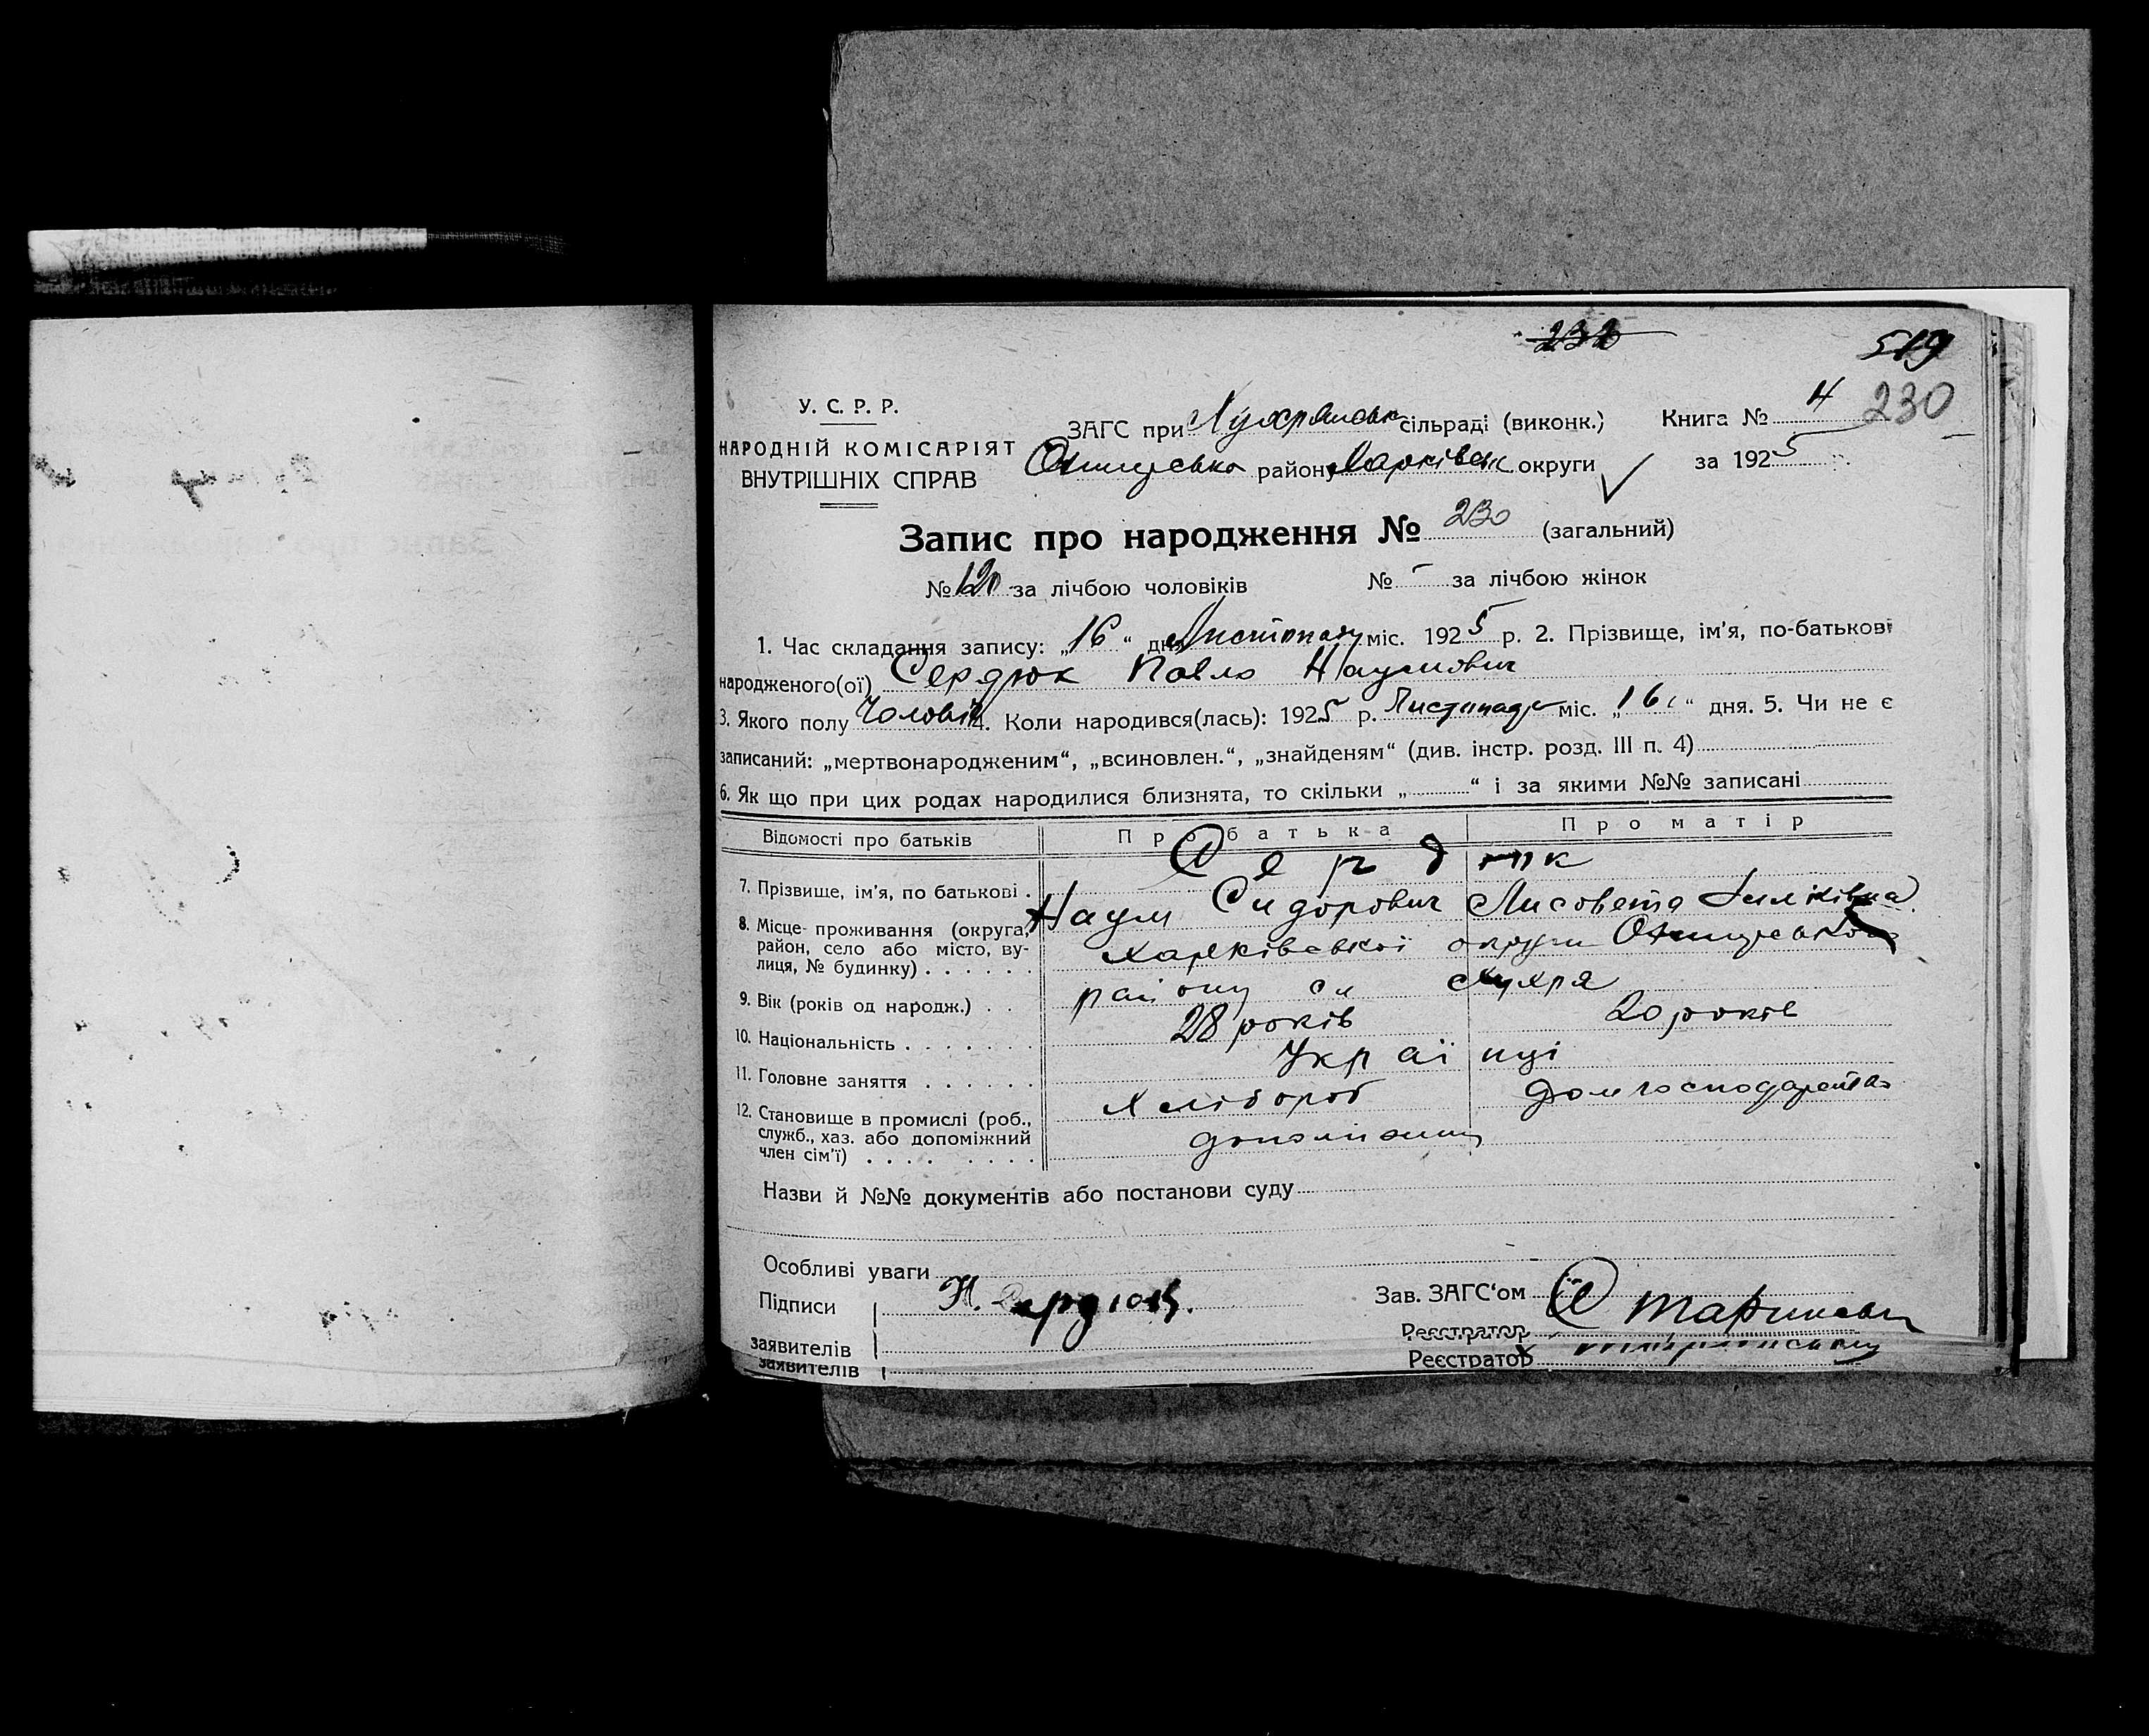 232
519
У. С. Р. Р.
НАРОДНІЙ КОМІСАРІЯТ
ВНУТРІШНІХ СПРАВ
ЗАГС при сільраді (виконк.)
району Харківськ округи
Книга № 4 230
за 1925
Запис про народження № 230 (загальний)
№ 120 за лічбою чоловіків № - за лічбою жінок
1. Час складання запису: „16“ дня Листопаду міс. 1925 р. 2. Прізвище, ім'я, по-батькові
народженого(ої) Сердюк Павло Наумович
3. Якого полу Чоловіч 4. Коли народився(лась): 1925 р. Листопаду міс. „16“ дня. 5. Чи не є
записаний: „мертвонародженим“, „всиновлен.“, „знайденям“ (див. інстр. розд. III п. 4)
6. Як що при цих родах народилися близнята, то скільки „ “ і за якими №№ записані
Відомості про батьків Про батька Про матір
Сердюк
7. Прізвище, ім'я, по батькові . Наум Сидорович Лисовета
8. Місце проживання (округа, район, село або місто, вулиця, № будинку) . . . . . . Харківської округи
району
9. Вік (років од народж.) . . 28 років 20 років
10. Національність . . . . . . . Українці
11. Головне заняття . . . . . . Хлібороб Домгосподарство
12. Становище в промислі (роб., служб., хаз. або допоміжний член сім'ї) . . . . . . . .
Назви й №№ документів або постанови суду
Особливі уваги
Підписи Н. Сердюк.
Зав. ЗАГС'ом
заявителів
Реєстратор
заявителів
Реєстратор